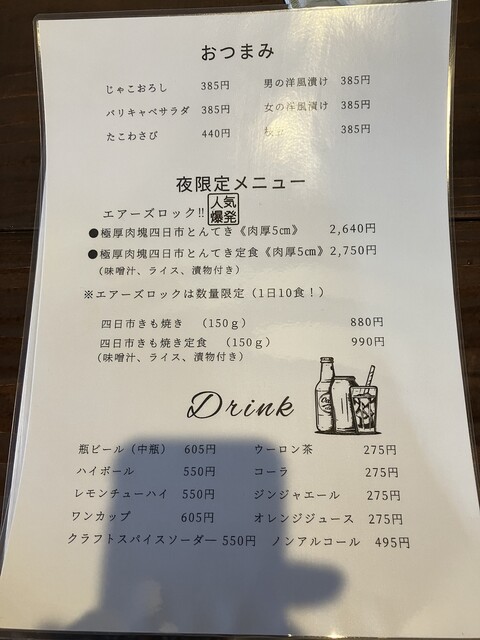 おつまみ
じゃこおろし 385円 男の洋風漬け 385円
パリキャベサラダ 385円 女の洋風漬け 385円
たこわさび 440円 385円
夜限定メニュー
エアーズロック!! 人気爆発
●極厚肉塊四日市とんてき《肉厚5㎝》 2,640円
●極厚肉塊四日市とんてき定食《肉厚5㎝》2,750円
（味噌汁、ライス、漬物付き）
※エアーズロックは数量限定（1日10食！）
四日市きも焼き （150ｇ） 880円
四日市きも焼き定食 （150ｇ） 990円
（味噌汁、ライス、漬物付き）
Drink
瓶ビール（中瓶） 605円 ウーロン茶 275円
ハイボール 550円 コーラ 275円
レモンチューハイ 550円 ジンジャエール 275円
ワンカップ 605円 オレンジジュース 275円
クラフトスパイスソーダー 550円 ノンアルコール 495円